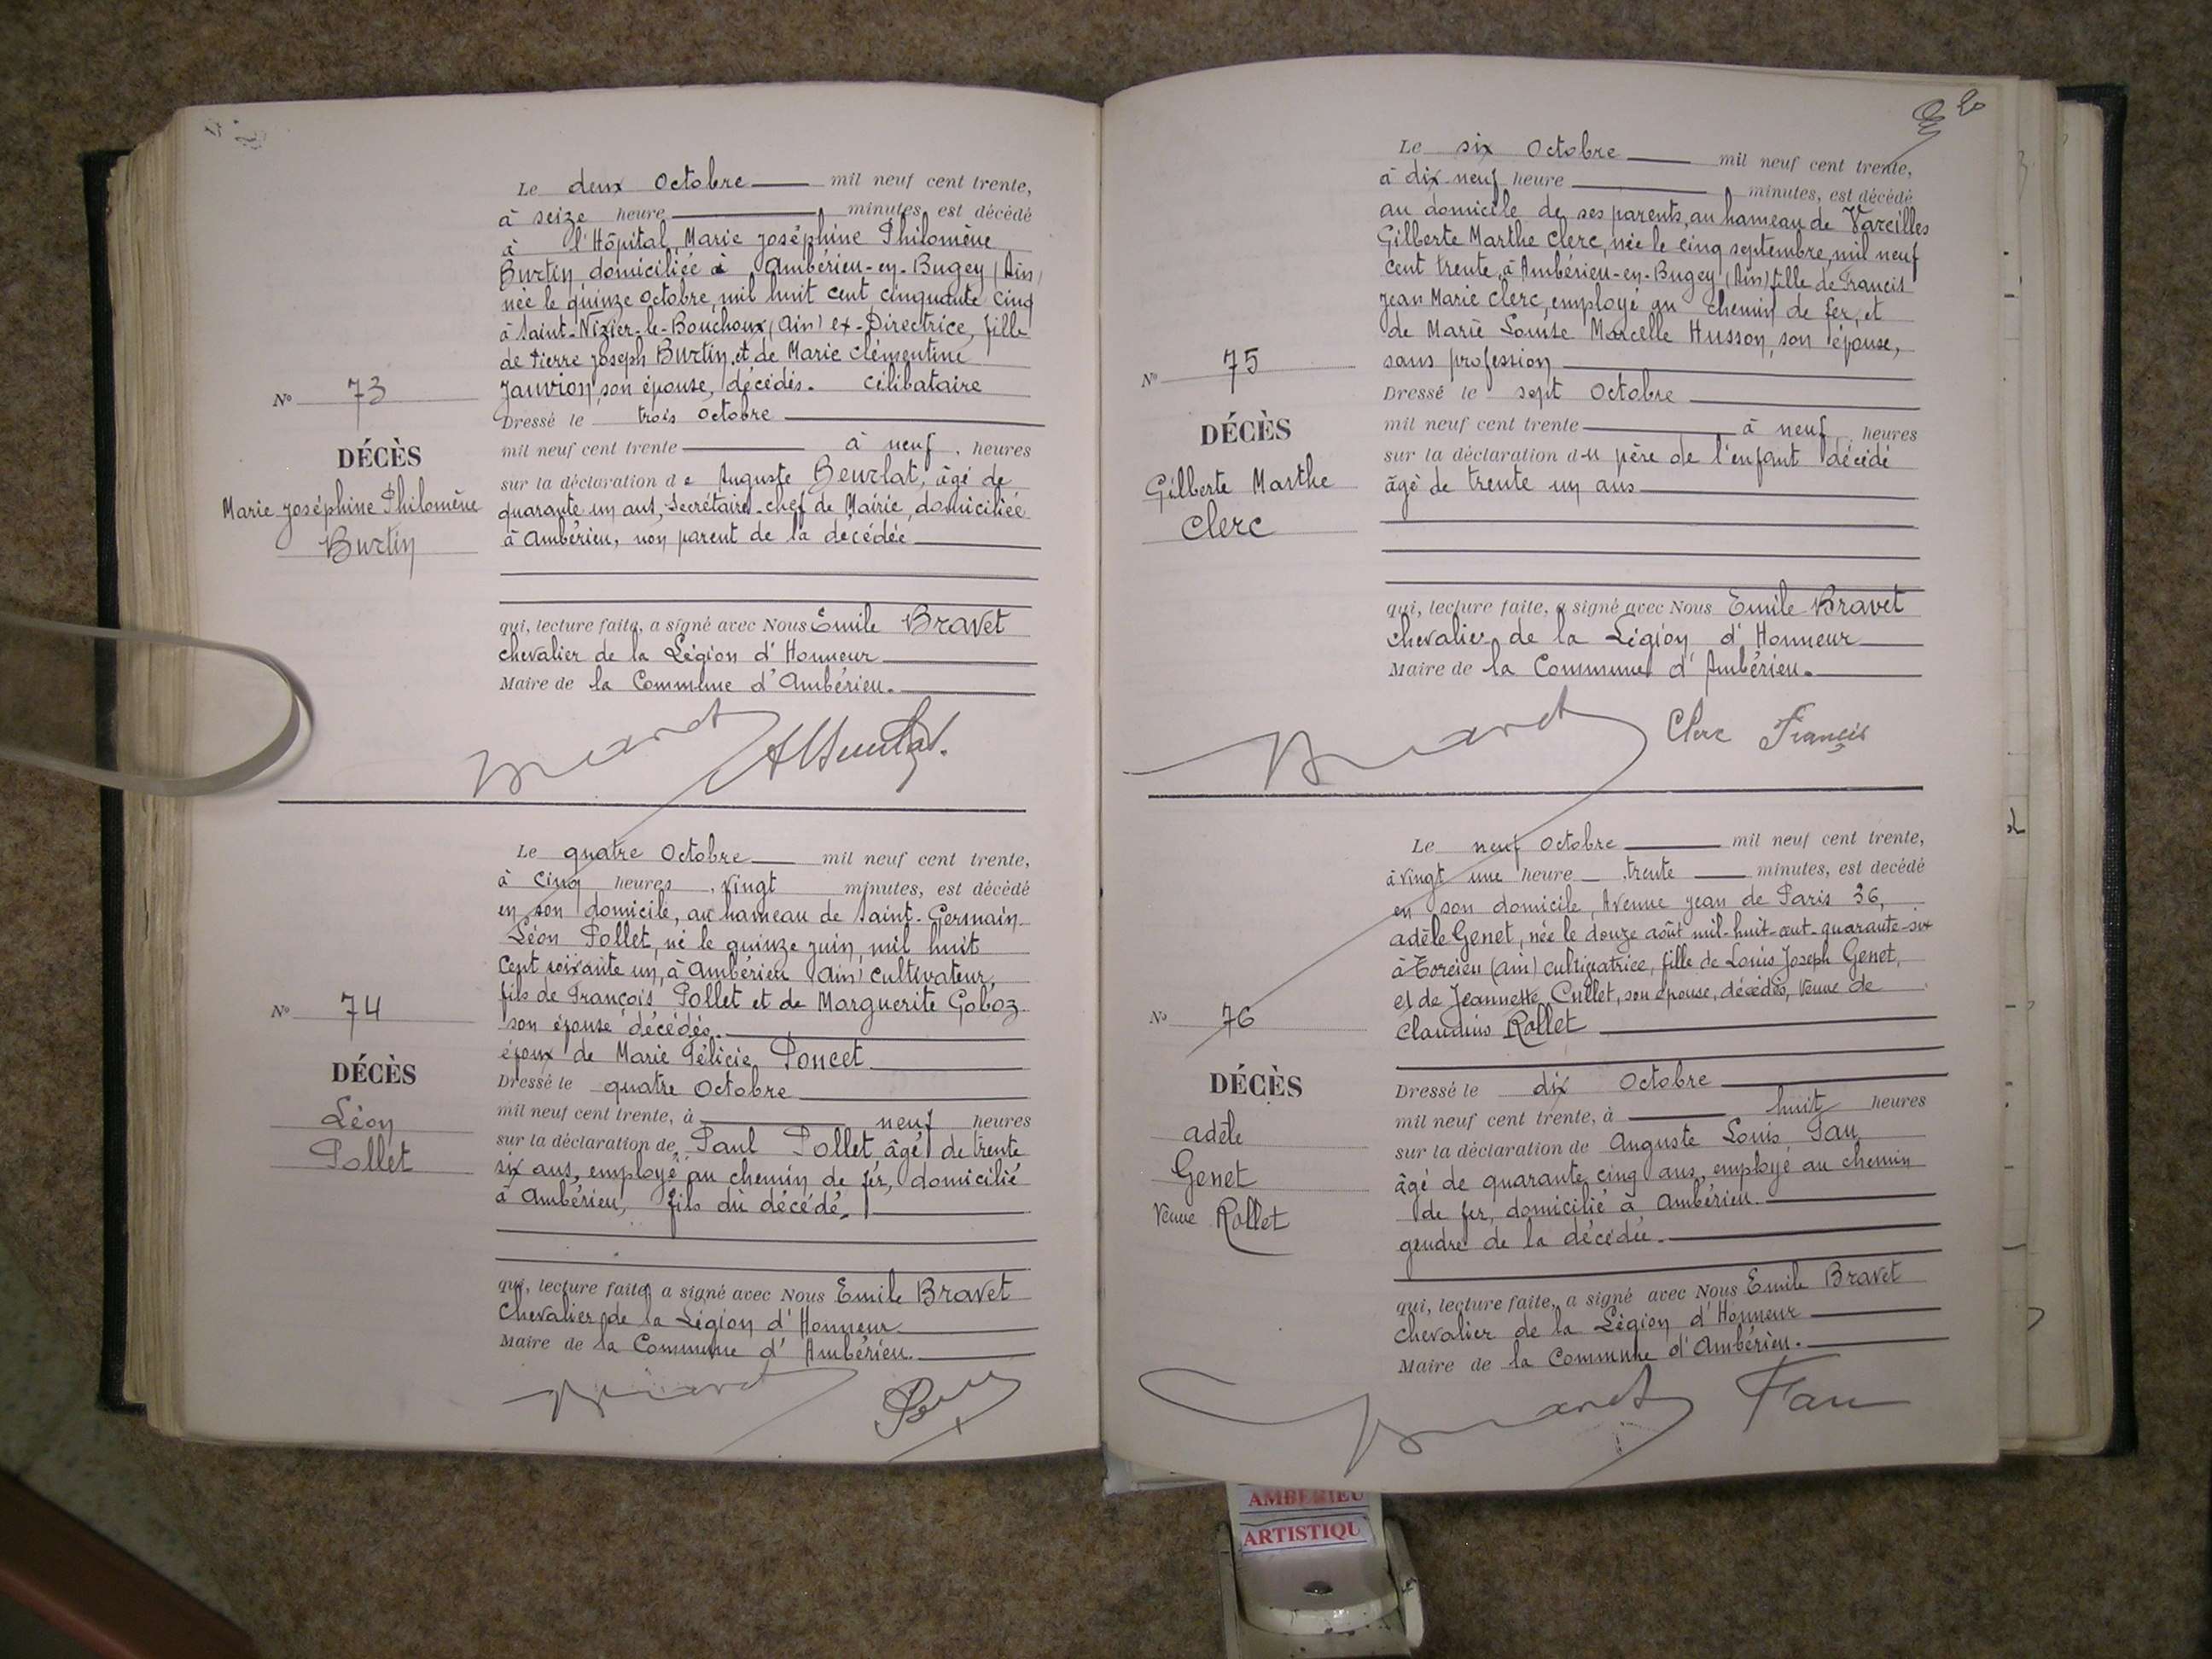 Le deux Octobre mil neuf cent trente,
à seize heure minutes, est décédé
à l'Hôpital, Marie Joséphine Philomène
Burtin, domiciliée à Ambérieu-en-Bugey (Ain)
née le quinze Octobre, mil huit cent cinquante cinq
à Saint-Nizier-le-Bouchoux (Ain) ex-Directrice, fille
de Pierre Joseph Burtin et de Marie Clémentine
Jauvion son épouse, décédés. célibataire
N° 73
DÉCÈS
Marie Joséphine Philomène
Burtin
Dressé le trois Octobre
mil neuf cent trente à neuf heures
sur la déclaration de Auguste Beurlat, âgé de
quarante un ans, secrétaire-chef de Mairie, domiciliée
à Ambérieu, non parent de la décédée
qui, lecture faite, a signé avec Nous Emile Bravet
chevalier de la Légion d'Honneur
Maire de la Commune d'Ambérieu.
Le quatre Octobre mil neuf cent trente,
à cinq heures vingt minutes, est décédé
en son domicile, au hameau de Saint-Germain
Léon Pollet, né le quinze juin, mil huit
cent soixante un, à Ambérieu (Ain) cultivateur,
fils de François Pollet et de Marguerite Goboz
son épouse décédés.
époux de Marie Félicie Poncet
N° 74
DÉCÈS
Léon
Pollet
Dressé le quatre Octobre
mil neuf cent trente, à neuf heures
sur la déclaration de Paul Pollet âgé de trente
six ans, employé au chemin de fer, domicilié
à Ambérieu, fils du décédé.
qui, lecture faite, a signé avec Nous Emile Bravet
Chevalier de la Légion d'Honneur
Maire de la Commune d'Ambérieu.
20
Le six Octobre mil neuf cent trente,
à dix-neuf heure minutes, est décédé
au domicile de ses parents, au hameau de Vareilles
Gilberte Marthe Clerc, née le cinq septembre, mil neuf
cent trente, à Ambérieu-en-Bugey (Ain) fille de Francis
Jean Marie Clerc, employé au chemin de fer, et
de Marie Louise Marcelle Husson, son épouse,
sans profession
N° 75
DÉCÈS
Gilberte Marthe
Clerc
Dressé le sept Octobre
mil neuf cent trente à neuf heures
sur la déclaration du père de l'enfant décédé
âgé de trente un ans
qui, lecture faite, a signé avec Nous Emile Bravet
chevalier de la Légion d'Honneur
Maire de la Commune d'Ambérieu.
Clerc Francis
Le neuf Octobre mil neuf cent trente,
à vingt une heure trente minutes, est decédé
en son domicile, Avenue Jean de Paris 36,
adèle Genet, née le douze août mil-huit-cent-quarante-six
à Torcieu (Ain) cultivatrice, fille de Louis Joseph Genet,
et de Jeannette Cullet, son épouse, décédés, veuve de
Claudius Rollet
N° 76
DÉCÈS
adèle
Genet
Veuve Rollet
Dressé le dix Octobre
mil neuf cent trente, à huit heures
sur la déclaration de Auguste Louis Fau
âgé de quarante cinq ans, employé au chemin
de fer, domicilié à Ambérieu.
gendre de la décédée.
qui, lecture faite, a signé avec Nous Emile Bravet
chevalier de la Légion d'Honneur
Maire de la Commune d'Ambérieu.
Fau
AMBERIEU
ARTISTIQU